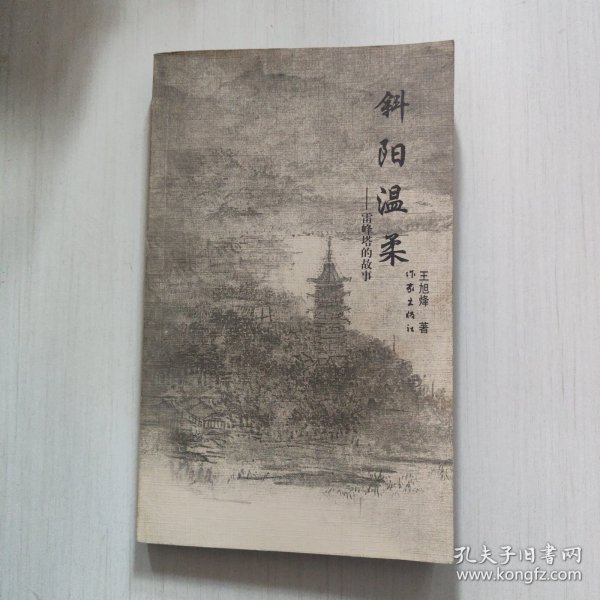 斜阳温柔
——雷峰塔的故事
王旭烽 著
作家出版社
孔夫子旧书网
www.kongfz.com